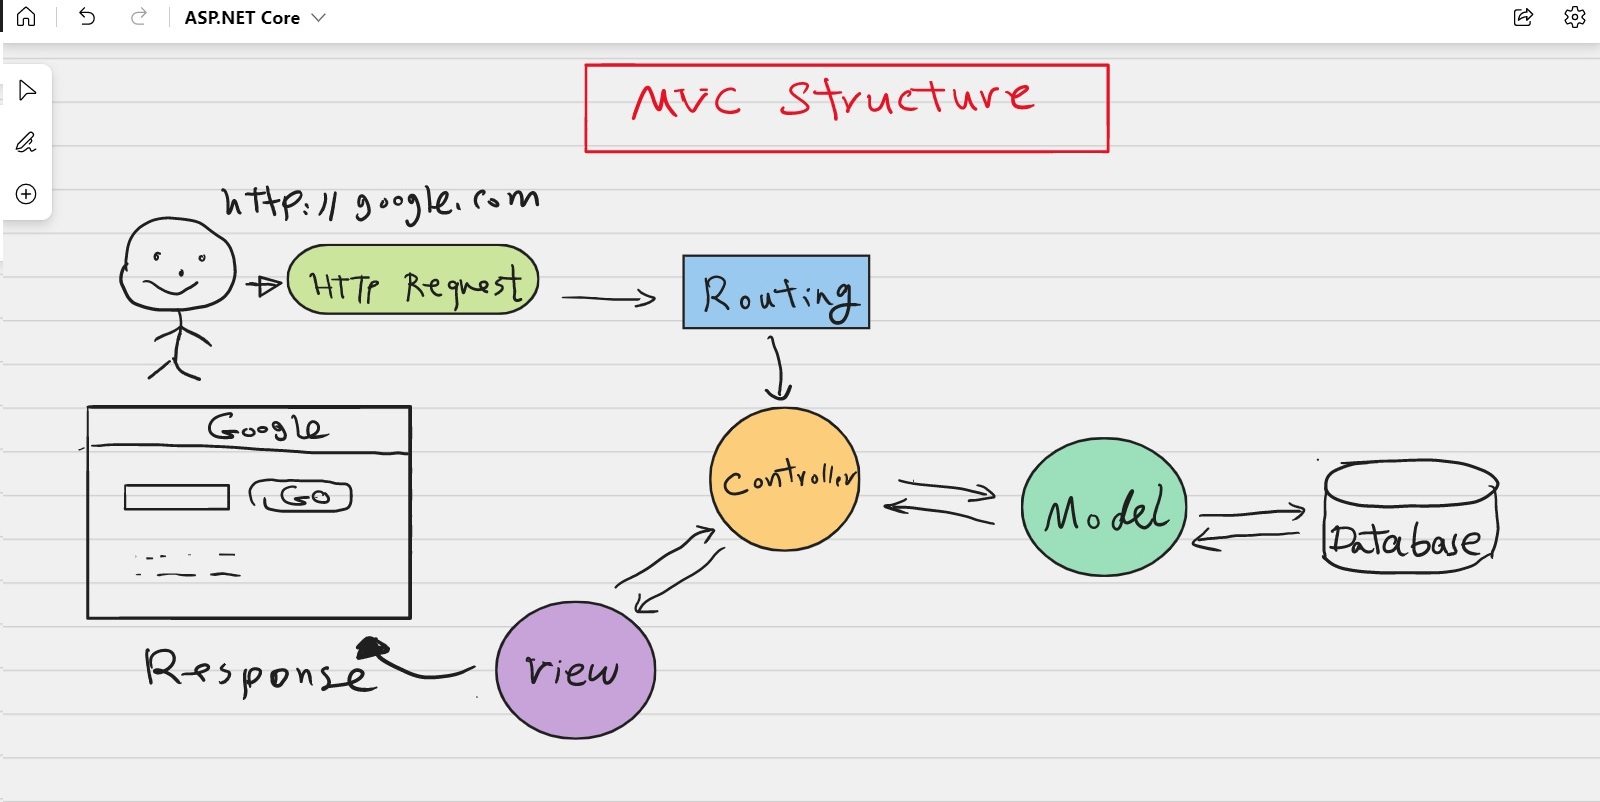 ASP.NET Core
MVC Structure
http://google.com
HTTP Request
Routing
Google
GO
Controller
Model
Database
View
Response